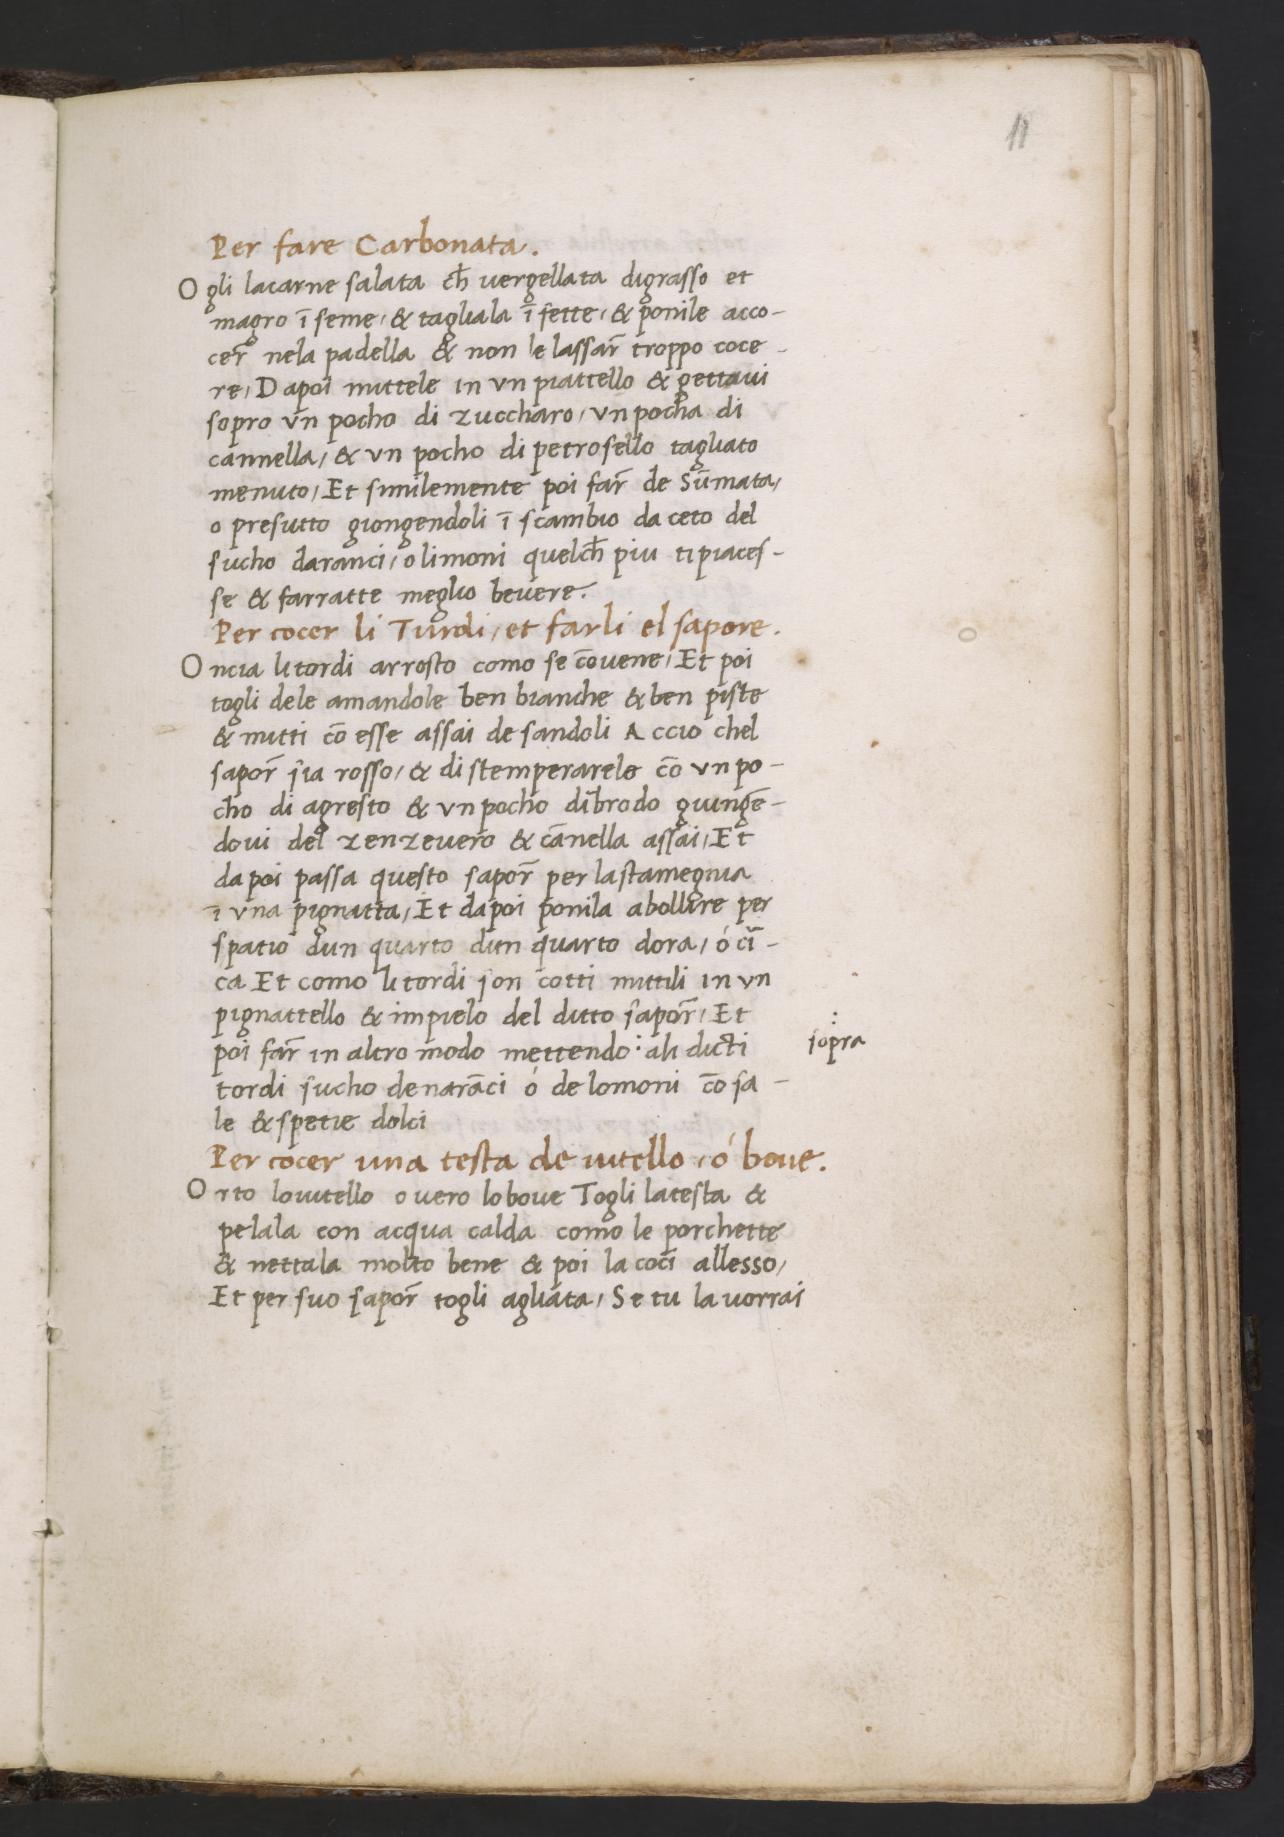 11
Per fare Carbonata.
O gli lacarne salata ch̄ vergellata digrasso et
magro ī seme, & tagliala ī fette, & ponile acco-
cer̄ nela padella & non le lassar̄ troppo coce-
re, Dapoi mittele in vn piattello & gettaui
sopro vn pocho di zuccharo, vn pocha di
cannella, & vn pocho di petrosello tagliato
menuto, Et similemente poi far̄ de Sūmata,
o presutto giongendoli ī scambio da ceto del
sucho daranci, o limoni quelch̄ piu ti piaces-
se & farratte meglio bevere.
Per cocer li Turdi, et farli el sapore.
O ncia li tordi arrosto como se cōuene, Et poi
togli dele amandole ben bianche & ben piste
& mitti cō esse assai de sandoli Accio chel
sapor̄ sia rosso, & distemperarelo cō vn po-
cho di agresto & vn pocho dibrodo giungē-
doui del zenzevero & cānella assai, Et
dapoi passa questo sapor̄ per lastamegnia
ī vna pignatta, Et dapoi ponila abollire per
spatio dun quarto dun quarto dora, ó cī-
ca Et como li tordi son cotti mittili in vn
pignattello & impielo del ditto sapor̄, Et
poi far̄ in altro modo mettendo ⁚ ali dicti
⁚ sopra
tordi sucho de narāci ó de lomoni cō sa-
le & spetie dolci
Per cocer una testa de uitello, ó boue.
O rto lo vitello o vero lo boue Togli la testa &
pelala con acqua calda como le porchette
& nettala molto bene & poi la coci allesso,
Et per suo sapor̄ togli agliata, Se tu la uorrai